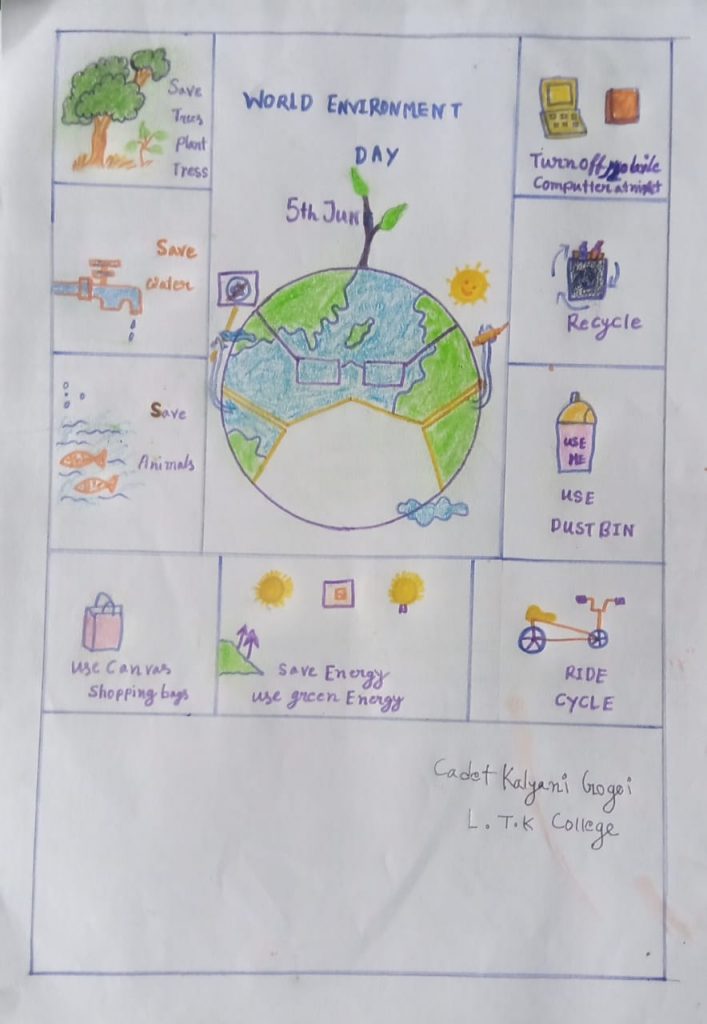 Save
Trees
Plant
Tress
WORLD ENVIRONMENT
DAY
5th Jun
Turnoff mobile
Computter at night
Save
Water
Recycle
Save
Animals
USE
ME
USE
DUST BIN
use Canvas
Shopping bags
Save Energy
use green Energy
RIDE
CYCLE
Cadet Kalyani Gogoi
L.T.K College